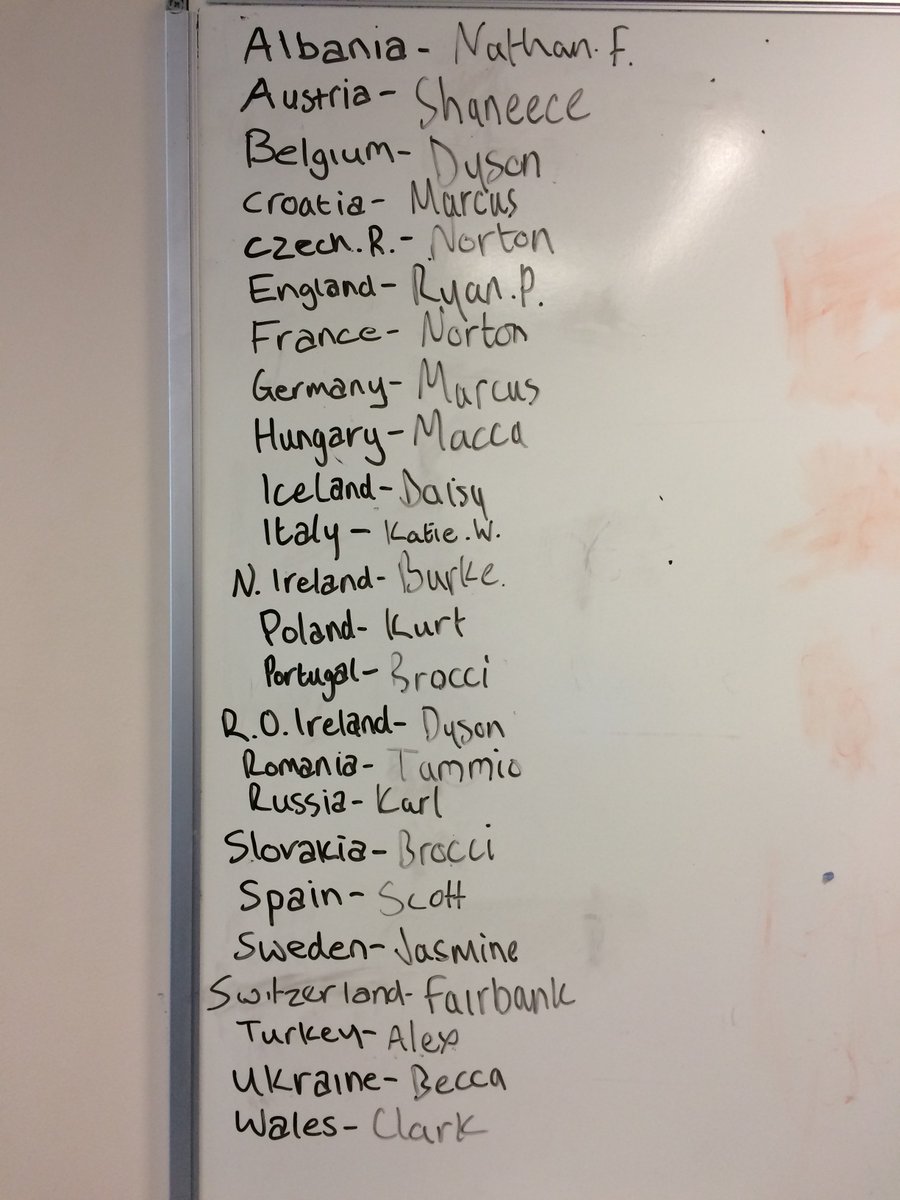 Albania - Nathan. F.
Austria - Shaneece
Belgium - Dyson
Croatia - Marcus
Czech. R. - Norton
England - Ryan. P.
France - Norton
Germany - Marcus
Hungary - Macca
Iceland - Daisy
Italy - Katie. W.
N. Ireland - Burke.
Poland - Kurt
Portugal - Brocci
R.O. Ireland - Dyson
Romania - Tammio
Russia - Karl
Slovakia - Brocci
Spain - Scott
Sweden - Jasmine
Switzerland - Fairbank
Turkey - Alex
Ukraine - Becca
Wales - Clark